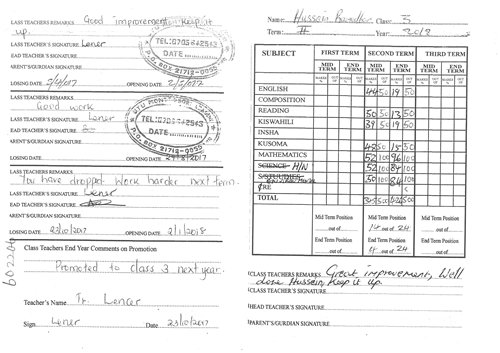 LASS TEACHERS REMARKS Good improvement. Keep it
up.
LASS TEACHER'S SIGNATURE Lener
EAD TEACHER'S SIGNATURE
ARENT'S/GURDIAN SIGNATURE
LOSING DATE OPENING DATE
TEL:0705 842543
DATE
P.O. BOX 21712-00505
LASS TEACHERS REMARKS
Good work
LASS TEACHER'S SIGNATURE Lener
EAD TEACHER'S SIGNATURE
ARENT'S/GURDIAN SIGNATURE
LOSING DATE OPENING DATE
LASS TEACHERS REMARKS
You have dropped. Work harder next term.
LASS TEACHER'S SIGNATURE Lener
EAD TEACHER'S SIGNATURE
ARENT'S/GURDIAN SIGNATURE
LOSING DATE 23/10/2017 OPENING DATE 2/1/2018
Class Teachers End Year Comments on Promotion
Promoted to class 3 next year.
Teacher's Name Tr. Lencer
Sign Lener Date 23/10/2017
Name: Hussein Class: 3
Term: II Year 2018
SUBJECT FIRST TERM SECOND TERM THIRD TERM
MID TERM END TERM MID TERM END TERM MID TERM END TERM
MARKS OUT OF MARKS OUT OF MARKS OUT OF MARKS OUT OF MARKS OUT OF MARKS OUT OF
ENGLISH 44 50 19 50
COMPOSITION
READING 50 50 13 50
KISWAHILI 39 50 19 50
INSHA
KUSOMA 48 50 15 50
MATHEMATICS 52 100 96 100
SCIENCE H/N 52 100 84 100
S/STUDIES 50 100 84 100
CRE
TOTAL 500 500
Mid Term Position Mid Term Position Mid Term Position
out of 14 out of 24 out of
End Term Position End Term Position End Term Position
out of out of 24 out of
CLASS TEACHERS REMARKS Great improvement, Well
done Hussein, keep it up.
CLASS TEACHER'S SIGNATURE
HEAD TEACHER'S SIGNATURE
PARENT'S/GURDIAN SIGNATURE